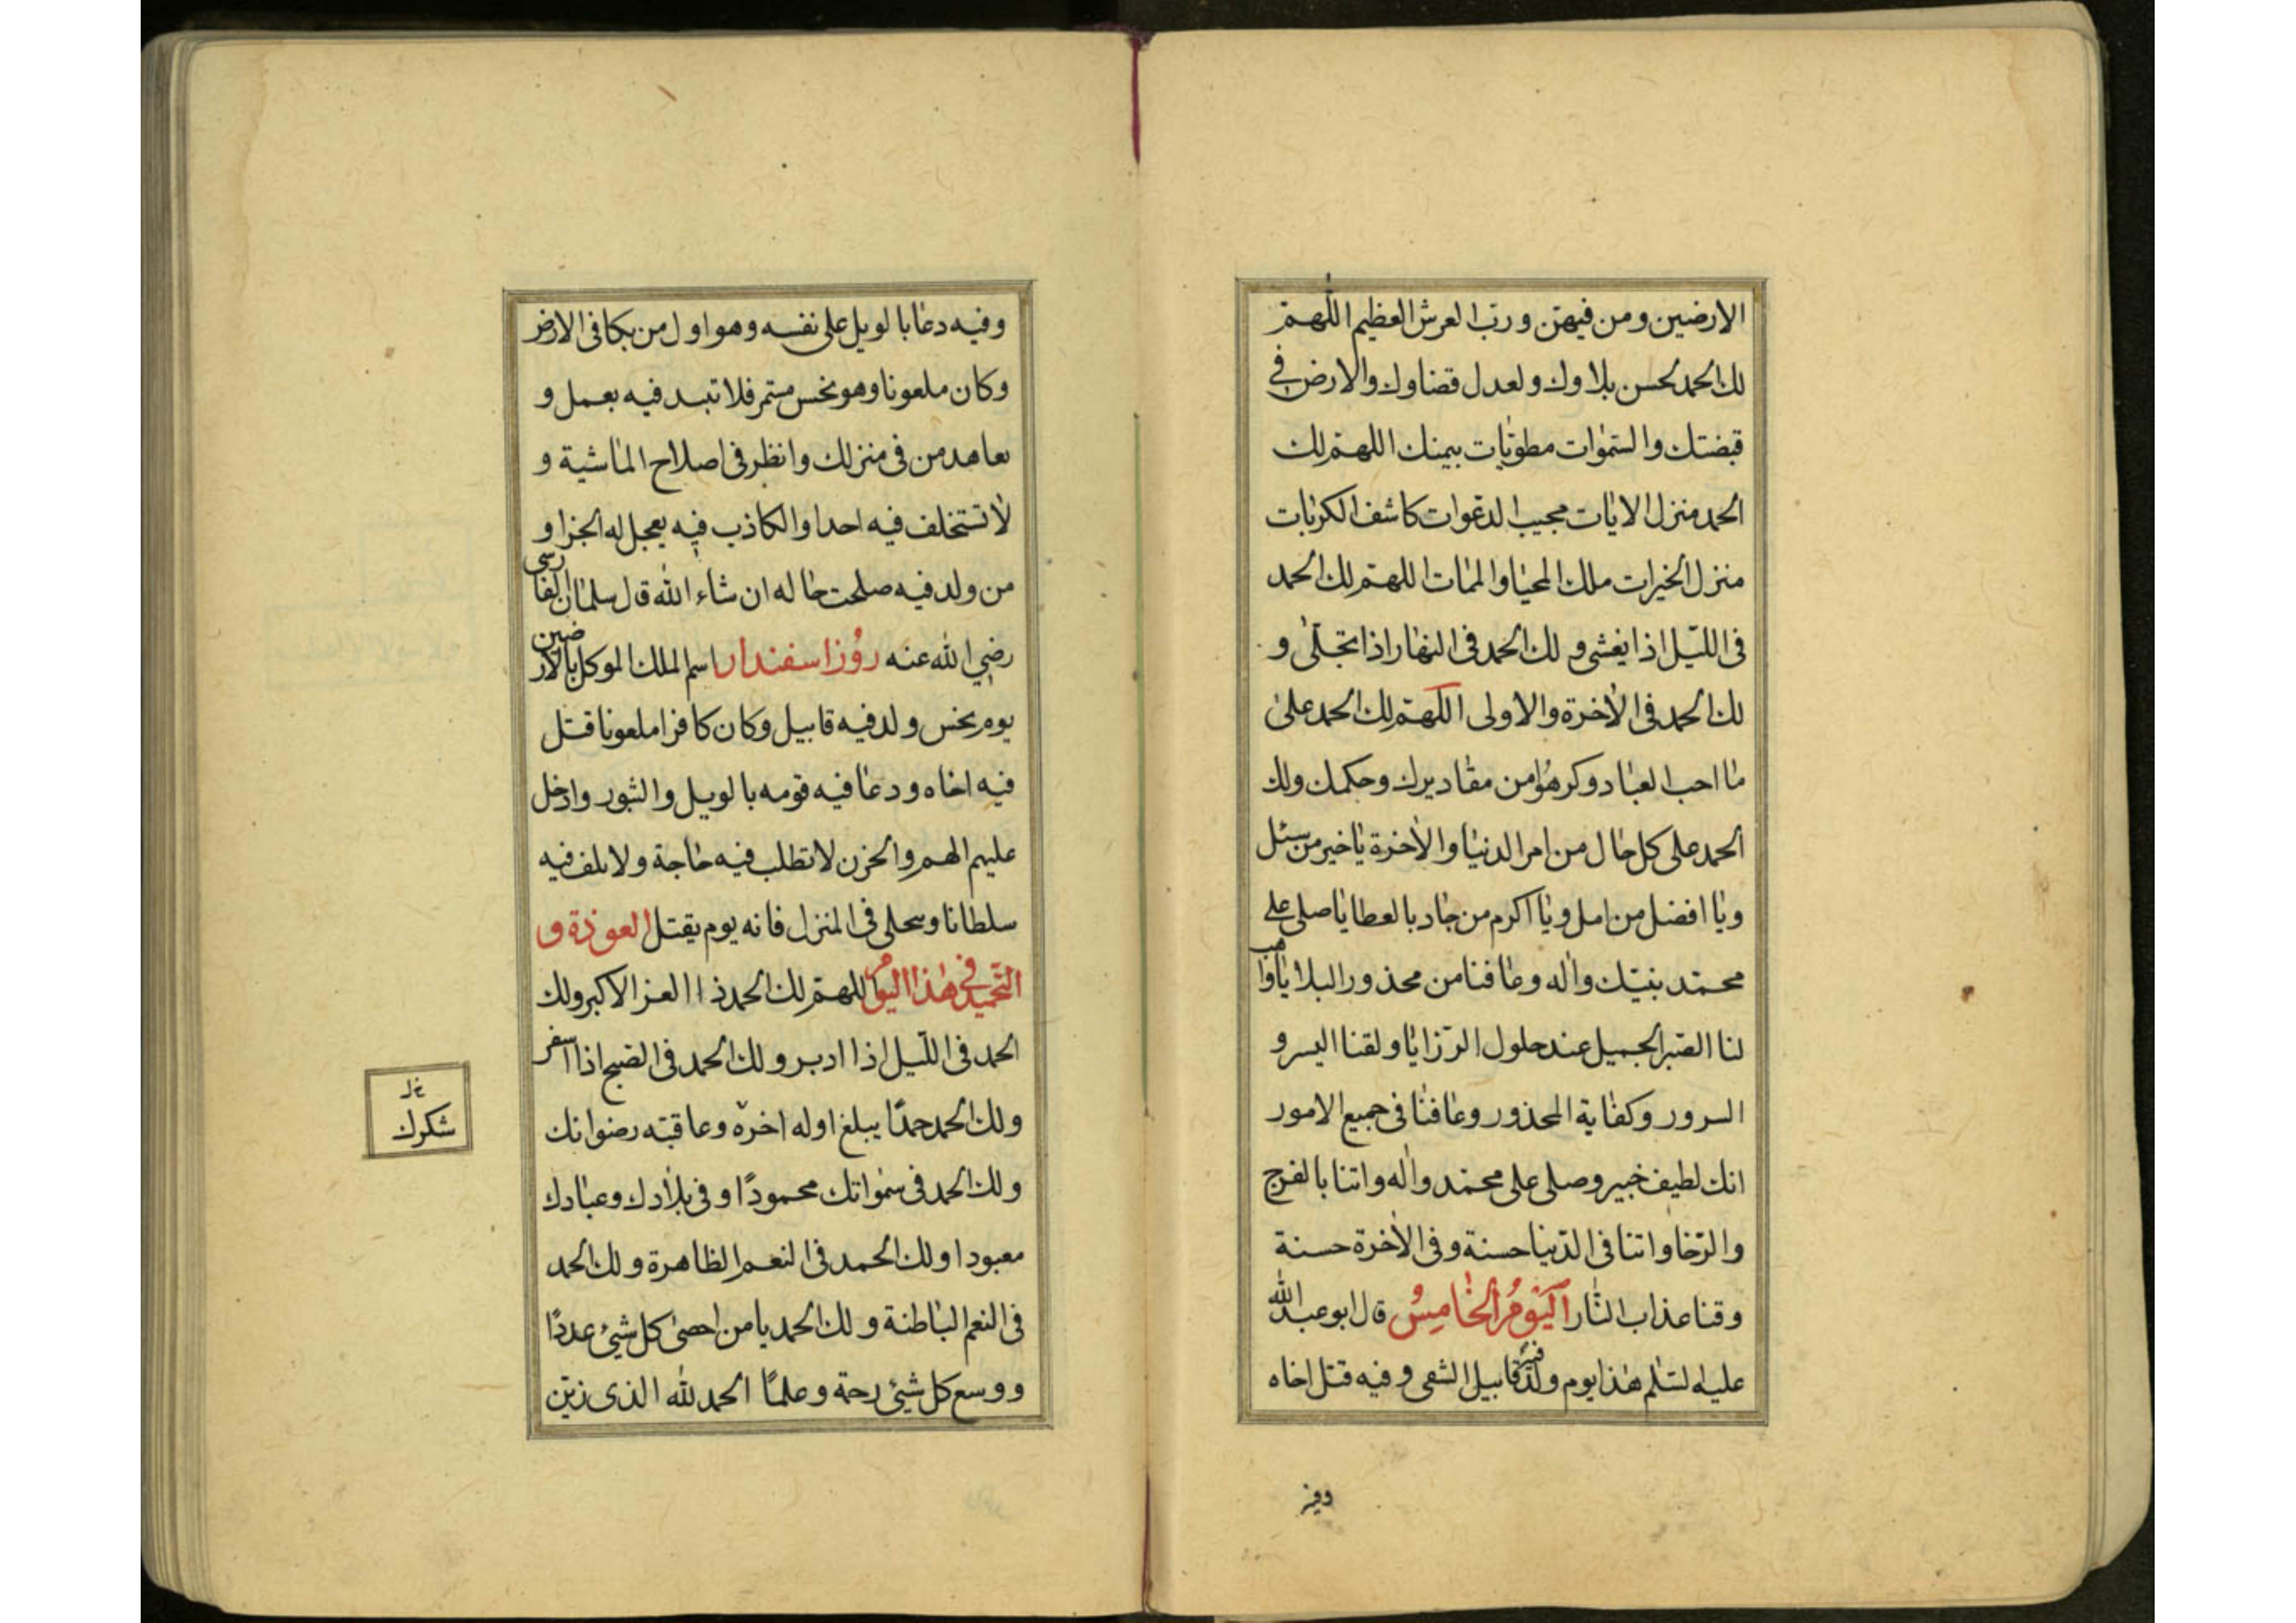 الارضين ومن فيهن ورب العرش العظيم اللهم
لك الحمد لحسن بلاوك ولعدل قضاوك والارض في
قبضتك والسموات مطويات بيمنك اللهم لك
الحمد منزل الايات مجيب الدعوات كاشف الكربات
منزل الخيرات ملك المحيا والممات اللهم لك الحمد
فى الليل اذا يغشى و لك الحمد فى النهار اذا تجلى و
لك الحمد فى الاخرة والاولى اللهم لك الحمد على
ما احب العباد وكرهوا من مقاديرك وحكمك ولك
الحمد على كل حال من امر الدنيا والاخرة يا خير من سئل
ويا افضل من امل ويا اكرم من جاد بالعطايا صلى على
محمد بنيك واله وعافنا من محذور البلايا وهب
لنا الصبر الجميل عند حلول الرزايا ولقنا اليسر و
السرور وكفاية المحذور وعافنا فى جميع الامور
انك لطيف خبير وصلى على محمد واله واتنا بالفرج
والرخا واتنا فى الدنيا حسنة وفى الاخرة حسنة
وقنا عذاب النار اَليَومُ الخامِسُ قال ابو عبد الله
عليه لسلم هذا يوم ولد فيه قابيل الشقى وفيه قتل اخاه
وفيه
وفيه دعا بالويل على نفسه وهو اول من بكا فى الارض
وكان ملعونا وهو نحس مستمر فلا تبد فيه بعمل و
تعاهد من فى منزلك وانظر فى اصلاح الماشية و
لا تستخلف فيه احدا والكاذب فيه يعجل له الجزا و
من ولد فيه صلحت حاله ان شاء الله قال سلمان الفارسى
رضي الله عنه روُز اسفندار اسم الملك الموكل بالارضين
يوم نحس ولد فيه قابيل وكان كافرا ملعونا قتل
فيه اخاه ودعا فيه قومه بالويل والثبور وادخل
عليهم الهم والحزن لا تطلب فيه حاجة ولا تلف فيه
سلطانا وتحلى فى المنزل فانه يوم يقتل العوذة و
التحميد في هذا اليوم اللهم لك الحمد ذا العز الاكبر ولك
الحمد فى الليل اذا ادبر ولك الحمد فى الصبح اذا اسفر
ولك الحمد حمدًا يبلغ اوله اخره وعاقبته رضوانك
ولك الحمد فى سمواتك محمودًا و فى بلادك وعبادك
معبودا ولك الحمد فى النعم الظاهرة ولك الحمد
فى النعم الباطنة ولك الحمد يا من احصى كل شيئ عددًا
ووسع كل شيئ رحمة وعلمًا الحمد لله الذى زين
خل
شكرك